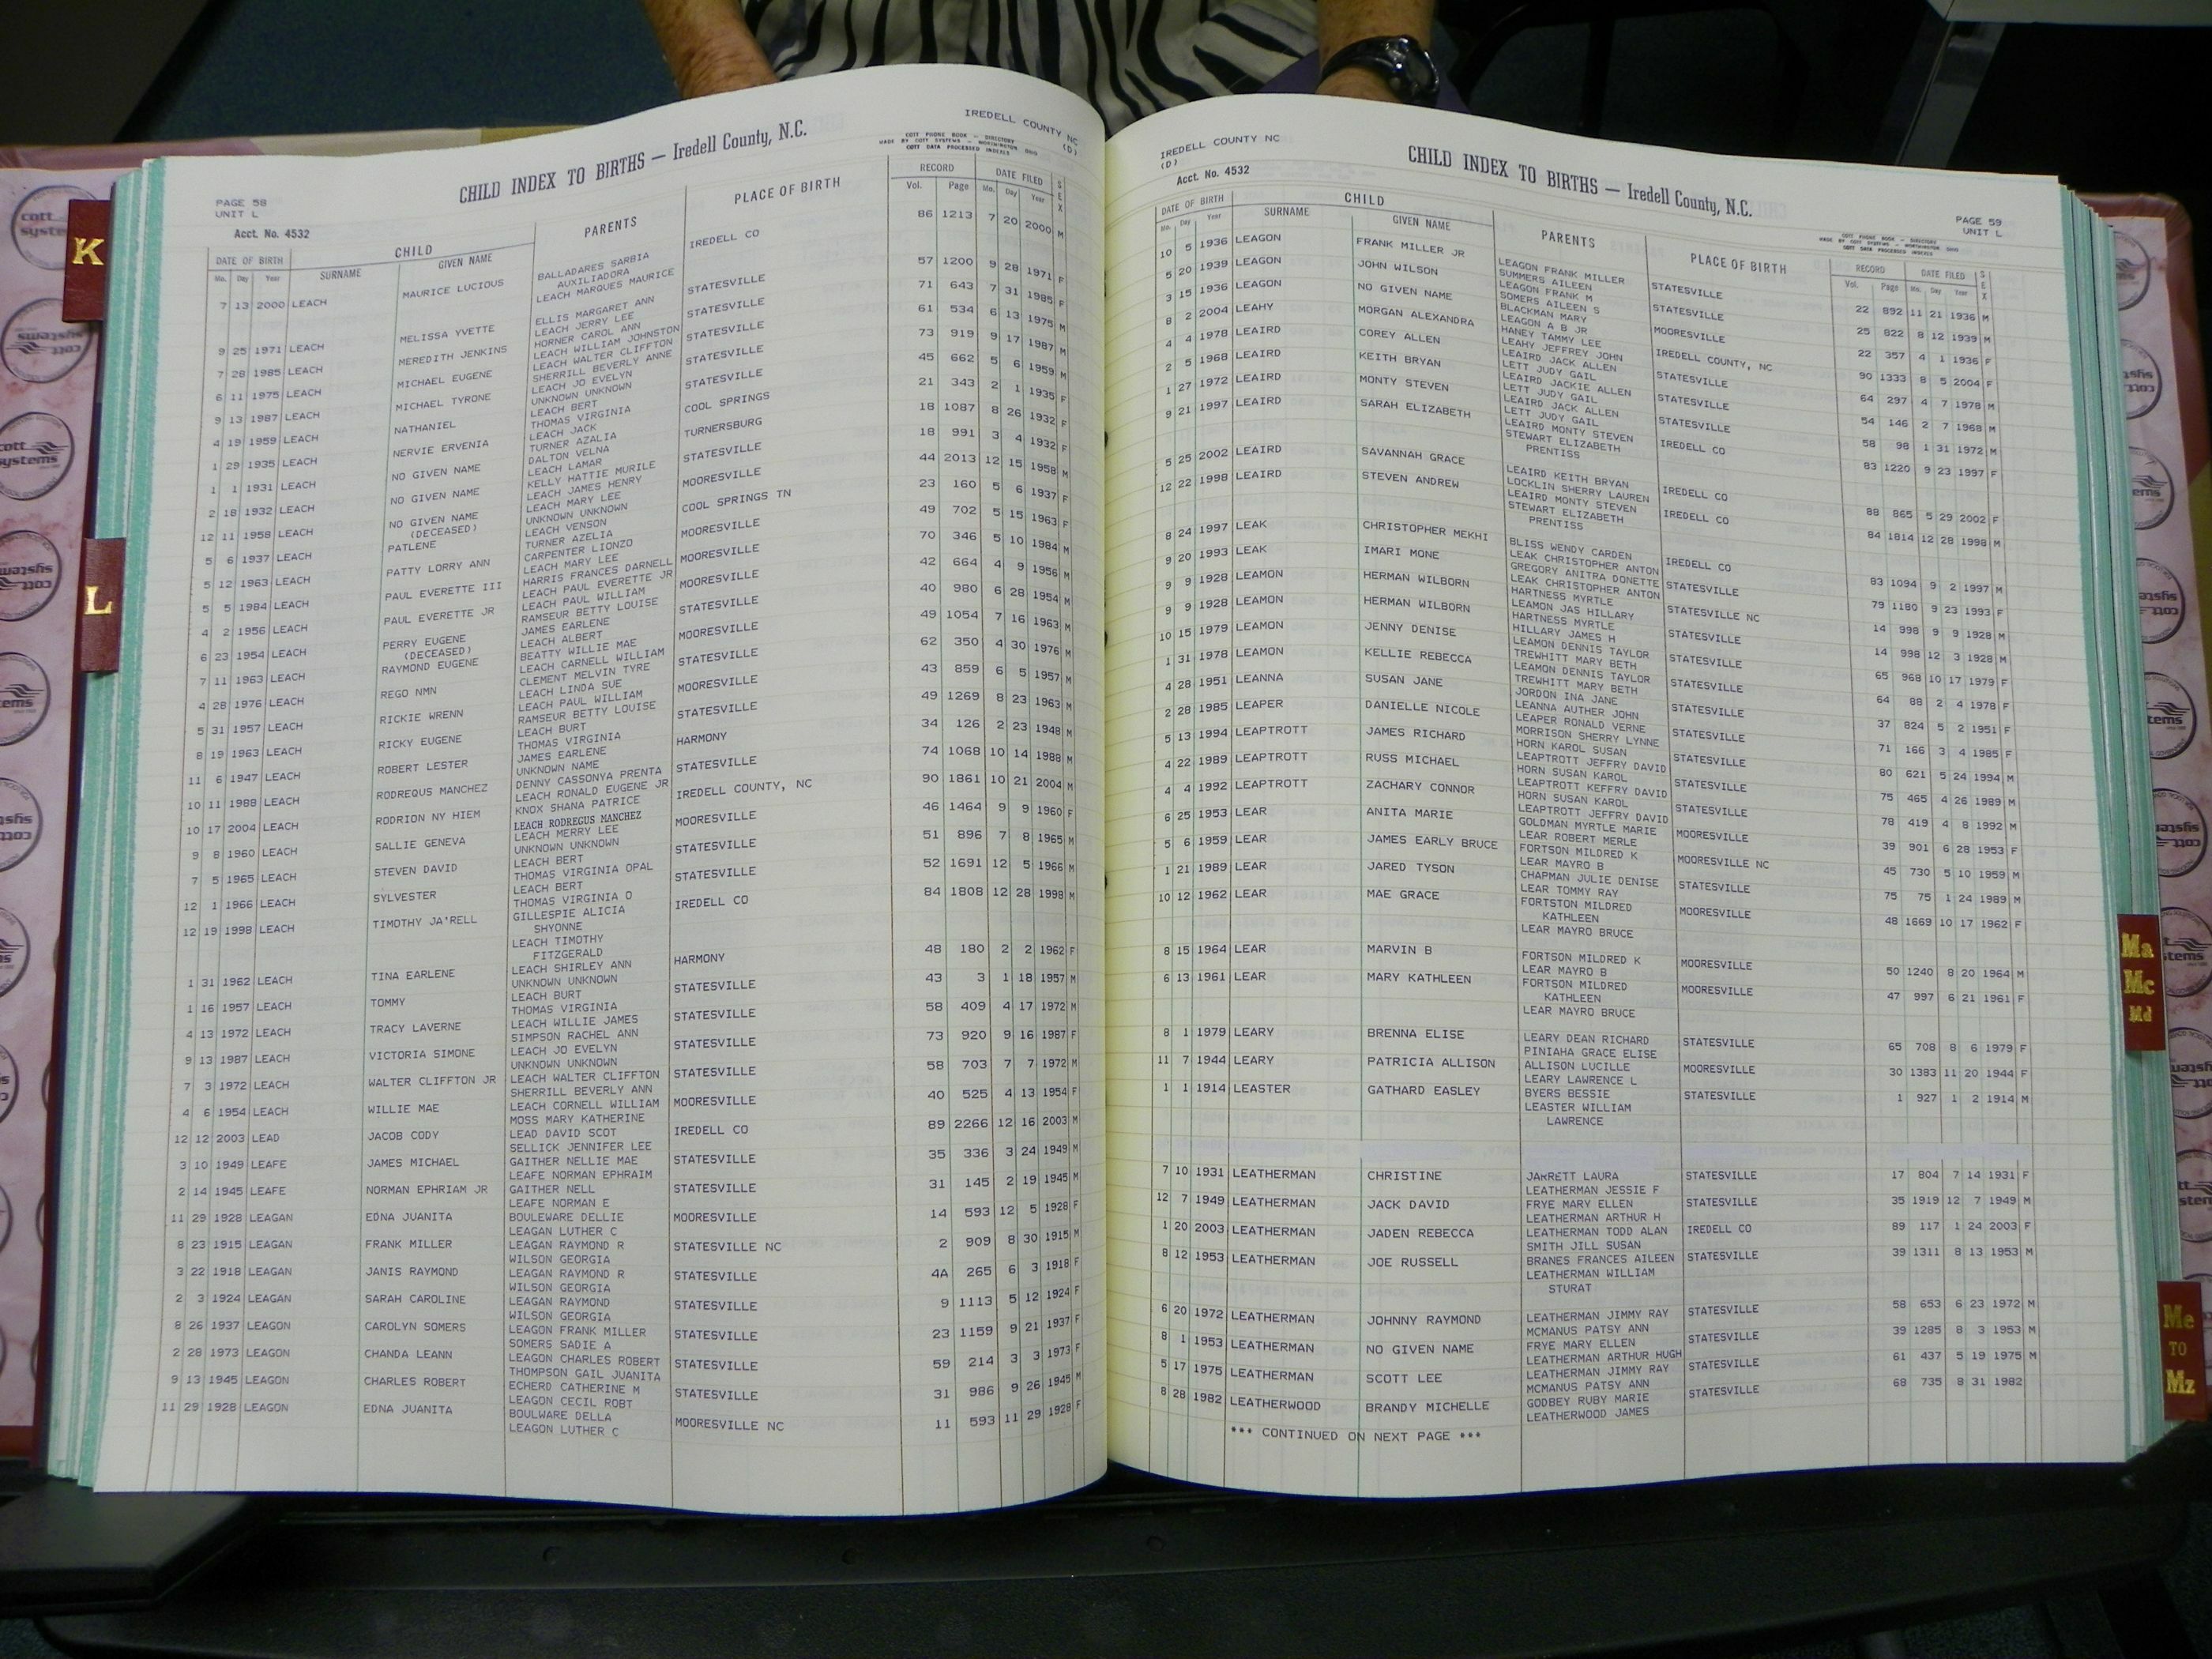 IREDELL COUNTY NC
(D)
PAGE 58
UNIT L
Acct. No. 4532
CHILD INDEX TO BIRTHS — Iredell County, N.C.
COTT PHONE BOOK - DIRECTORY
MADE BY COTT SYSTEMS - WORTHINGTON OHIO
COTT DATA PROCESSED INDEXES
DATE OF BIRTH CHILD PARENTS PLACE OF BIRTH RECORD DATE FILED SEX
Mo. Day Year SURNAME GIVEN NAME Vol. Page Mo. Day Year
7 13 2000 LEACH MAURICE LUCIOUS BALLADARES SARBIA IREDELL CO 86 1213 7 20 2000 M
AUXILIADORA
LEACH MARQUES MAURICE
9 25 1971 LEACH MELISSA YVETTE ELLIS MARGARET ANN STATESVILLE 57 1200 9 28 1971 F
LEACH JERRY LEE
7 28 1985 LEACH MEREDITH JENKINS HORNER CAROL ANN STATESVILLE 71 643 7 31 1985 F
LEACH WILLIAM JOHNSTON
6 11 1975 LEACH MICHAEL EUGENE LEACH WALTER CLIFFTON STATESVILLE 61 534 6 13 1975 M
SHERRILL BEVERLY ANNE
9 13 1987 LEACH MICHAEL TYRONE LEACH JO EVELYN STATESVILLE 73 919 9 17 1987 M
UNKNOWN UNKNOWN
4 19 1959 LEACH NATHANIEL LEACH BERT STATESVILLE 45 662 5 6 1959 M
THOMAS VIRGINIA
1 29 1935 LEACH NERVIE ERVENIA LEACH JACK COOL SPRINGS 21 343 2 1 1935 F
TURNER AZALIA
1 1 1931 LEACH NO GIVEN NAME DALTON VELNA TURNERSBURG 18 1087 8 26 1932 F
LEACH LAMAR
2 18 1932 LEACH NO GIVEN NAME KELLY HATTIE MURILE STATESVILLE 18 991 3 4 1932 F
LEACH JAMES HENRY
12 11 1958 LEACH NO GIVEN NAME LEACH MARY LEE MOORESVILLE 44 2013 12 15 1958 M
(DECEASED) UNKNOWN UNKNOWN
5 6 1937 LEACH PATLENE LEACH VENSON COOL SPRINGS TN 23 160 5 6 1937 F
TURNER AZELIA
5 12 1963 LEACH PATTY LORRY ANN CARPENTER LIONZO MOORESVILLE 49 702 5 15 1963 F
LEACH MARY LEE
5 5 1984 LEACH PAUL EVERETTE III HARRIS FRANCES DARNELL MOORESVILLE 70 346 5 10 1984 M
LEACH PAUL EVERETTE JR
4 2 1956 LEACH PAUL EVERETTE JR LEACH PAUL WILLIAM MOORESVILLE 42 664 4 9 1956 M
RAMSEUR BETTY LOUISE
6 23 1954 LEACH PERRY EUGENE JAMES EARLENE STATESVILLE 40 980 6 28 1954 M
(DECEASED) LEACH ALBERT
7 11 1963 LEACH RAYMOND EUGENE BEATTY WILLIE MAE MOORESVILLE 49 1054 7 16 1963 M
LEACH CARNELL WILLIAM
4 28 1976 LEACH REGO NMN CLEMENT MELVIN TYRE STATESVILLE 62 350 4 30 1976 M
LEACH LINDA SUE
5 31 1957 LEACH RICKIE WRENN LEACH PAUL WILLIAM MOORESVILLE 43 859 6 5 1957 M
RAMSEUR BETTY LOUISE
8 19 1963 LEACH RICKY EUGENE LEACH BURT STATESVILLE 49 1269 8 23 1963 M
THOMAS VIRGINIA
11 6 1947 LEACH ROBERT LESTER JAMES EARLENE HARMONY 34 126 2 23 1948 M
UNKNOWN NAME
10 11 1988 LEACH RODREQUS MANCHEZ DENNY CASSONYA PRENTA STATESVILLE 74 1068 10 14 1988 M
LEACH RONALD EUGENE JR
10 17 2004 LEACH RODRION NY HIEM KNOX SHANA PATRICE IREDELL COUNTY, NC 90 1861 10 21 2004 M
LEACH RODREGUS MANCHEZ
9 8 1960 LEACH SALLIE GENEVA LEACH MERRY LEE MOORESVILLE 46 1464 9 9 1960 F
UNKNOWN UNKNOWN
7 5 1965 LEACH STEVEN DAVID LEACH BERT STATESVILLE 51 896 7 8 1965 M
THOMAS VIRGINIA OPAL
12 1 1966 LEACH SYLVESTER LEACH BERT STATESVILLE 52 1691 12 5 1966 M
THOMAS VIRGINIA O
12 19 1998 LEACH TIMOTHY JA'RELL GILLESPIE ALICIA IREDELL CO 84 1808 12 28 1998 M
SHYONNE
LEACH TIMOTHY
FITZGERALD
1 31 1962 LEACH TINA EARLENE LEACH SHIRLEY ANN HARMONY 48 180 2 2 1962 F
UNKNOWN UNKNOWN
1 16 1957 LEACH TOMMY LEACH BURT STATESVILLE 43 3 1 18 1957 M
THOMAS VIRGINIA
4 13 1972 LEACH TRACY LAVERNE LEACH WILLIE JAMES STATESVILLE 58 409 4 17 1972 M
SIMPSON RACHEL ANN
9 13 1987 LEACH VICTORIA SIMONE LEACH JO EVELYN STATESVILLE 73 920 9 16 1987 F
UNKNOWN UNKNOWN
7 3 1972 LEACH WALTER CLIFFTON JR LEACH WALTER CLIFFTON STATESVILLE 58 703 7 7 1972 M
SHERRILL BEVERLY ANN
4 6 1954 LEACH WILLIE MAE LEACH CORNELL WILLIAM MOORESVILLE 40 525 4 13 1954 F
MOSS MARY KATHERINE
12 12 2003 LEAD JACOB CODY LEAD DAVID SCOT IREDELL CO 89 2266 12 16 2003 M
SELLICK JENNIFER LEE
3 10 1949 LEAFE JAMES MICHAEL GAITHER NELLIE MAE STATESVILLE 35 336 3 24 1949 M
LEAFE NORMAN EPHRAIM
2 14 1945 LEAFE NORMAN EPHRIAM JR GAITHER NELL STATESVILLE 31 145 2 19 1945 M
LEAFE NORMAN E
11 29 1928 LEAGAN EDNA JUANITA BOULEWARE DELLIE MOORESVILLE 14 593 12 5 1928 F
LEAGAN LUTHER C
8 23 1915 LEAGAN FRANK MILLER LEAGAN RAYMOND R STATESVILLE NC 2 909 8 30 1915 M
WILSON GEORGIA
3 22 1918 LEAGAN JANIS RAYMOND LEAGAN RAYMOND R STATESVILLE 4A 265 6 3 1918 F
WILSON GEORGIA
2 3 1924 LEAGAN SARAH CAROLINE LEAGAN RAYMOND STATESVILLE 9 1113 5 12 1924 F
WILSON GEORGIA
8 26 1937 LEAGON CAROLYN SOMERS LEAGON FRANK MILLER STATESVILLE 23 1159 9 21 1937 F
SOMERS SADIE A
2 28 1973 LEAGON CHANDA LEANN LEAGON CHARLES ROBERT STATESVILLE 59 214 3 3 1973 F
THOMPSON GAIL JUANITA
9 13 1945 LEAGON CHARLES ROBERT ECHERD CATHERINE M STATESVILLE 31 986 9 26 1945 M
LEAGON CECIL ROBT
11 29 1928 LEAGON EDNA JUANITA BOULWARE DELLA MOORESVILLE NC 11 593 11 29 1928 F
LEAGON LUTHER C
IREDELL COUNTY NC
(D)
Acct. No. 4532
CHILD INDEX TO BIRTHS — Iredell County, N.C.
PAGE 59
UNIT L
COTT PHONE BOOK - DIRECTORY
MADE BY COTT SYSTEMS - WORTHINGTON OHIO
COTT DATA PROCESSED INDEXES
DATE OF BIRTH CHILD PARENTS PLACE OF BIRTH RECORD DATE FILED SEX
Mo. Day Year SURNAME GIVEN NAME Vol. Page Mo. Day Year
10 5 1936 LEAGON FRANK MILLER JR LEAGON FRANK MILLER STATESVILLE 22 892 11 21 1936 M
SUMMERS AILEEN
5 20 1939 LEAGON JOHN WILSON LEAGON FRANK M MOORESVILLE 25 822 8 12 1939 M
SOMERS AILEEN S
3 15 1936 LEAGON NO GIVEN NAME BLACKMAN MARY IREDELL COUNTY, NC 22 357 4 1 1936 F
LEAGON A B JR
8 2 2004 LEAHY MORGAN ALEXANDRA HANEY TAMMY LEE STATESVILLE 90 1333 8 5 2004 F
LEAHY JEFFREY JOHN
4 4 1978 LEAIRD COREY ALLEN LEAIRD JACK ALLEN STATESVILLE 64 297 4 7 1978 M
LETT JUDY GAIL
2 5 1968 LEAIRD KEITH BRYAN LEAIRD JACKIE ALLEN STATESVILLE 54 146 2 7 1968 M
LETT JUDY GAIL
1 27 1972 LEAIRD MONTY STEVEN LEAIRD JACK ALLEN IREDELL CO 58 98 1 31 1972 M
LETT JUDY GAIL
9 21 1997 LEAIRD SARAH ELIZABETH LEAIRD MONTY STEVEN 83 1220 9 23 1997 F
STEWART ELIZABETH
PRENTISS
5 25 2002 LEAIRD SAVANNAH GRACE LEAIRD KEITH BRYAN IREDELL CO 88 865 5 29 2002 F
LOCKLIN SHERRY LAUREN
12 22 1998 LEAIRD STEVEN ANDREW LEAIRD MONTY STEVEN IREDELL CO 84 1814 12 28 1998 M
STEWART ELIZABETH
PRENTISS
8 24 1997 LEAK CHRISTOPHER MEKHI BLISS WENDY CARDEN IREDELL CO 83 1094 9 2 1997 M
LEAK CHRISTOPHER ANTON
9 20 1993 LEAK IMARI MONE GREGORY ANITRA DONETTE STATESVILLE 79 1180 9 23 1993 F
LEAK CHRISTOPHER ANTON
9 9 1928 LEAMON HERMAN WILBORN HARTNESS MYRTLE STATESVILLE NC 14 998 9 9 1928 M
LEAMON JAS HILLARY
9 9 1928 LEAMON HERMAN WILBORN HARTNESS MYRTLE STATESVILLE 14 998 12 3 1928 M
HILLARY JAMES H
10 15 1979 LEAMON JENNY DENISE LEAMON DENNIS TAYLOR STATESVILLE 65 968 10 17 1979 F
TREWHITT MARY BETH
1 31 1978 LEAMON KELLIE REBECCA LEAMON DENNIS TAYLOR STATESVILLE 64 88 2 4 1978 F
TREWHITT MARY BETH
4 28 1951 LEANNA SUSAN JANE JORDON INA JANE STATESVILLE 37 824 5 2 1951 F
LEANNA AUTHER JOHN
2 28 1985 LEAPER DANIELLE NICOLE LEAPER RONALD VERNE STATESVILLE 71 166 3 4 1985 F
MORRISON SHERRY LYNNE
5 13 1994 LEAPTROTT JAMES RICHARD HORN KAROL SUSAN STATESVILLE 80 621 5 24 1994 M
LEAPTROTT JEFFRY DAVID
4 22 1989 LEAPTROTT RUSS MICHAEL HORN SUSAN KAROL STATESVILLE 75 465 4 26 1989 M
LEAPTROTT KEFFRY DAVID
4 4 1992 LEAPTROTT ZACHARY CONNOR HORN SUSAN KAROL STATESVILLE 78 419 4 8 1992 M
LEAPTROTT JEFFRY DAVID
6 25 1953 LEAR ANITA MARIE GOLDMAN MYRTLE MARIE MOORESVILLE 39 901 6 28 1953 F
LEAR ROBERT MERLE
5 6 1959 LEAR JAMES EARLY BRUCE FORTSON MILDRED K MOORESVILLE NC 45 730 5 10 1959 M
LEAR MAYRO B
1 21 1989 LEAR JARED TYSON CHAPMAN JULIE DENISE STATESVILLE 75 75 1 24 1989 M
LEAR TOMMY RAY
10 12 1962 LEAR MAE GRACE FORTSTON MILDRED MOORESVILLE 48 1669 10 17 1962 F
KATHLEEN
LEAR MAYRO BRUCE
8 15 1964 LEAR MARVIN B FORTSON MILDRED K MOORESVILLE 50 1240 8 20 1964 M
LEAR MAYRO B
6 13 1961 LEAR MARY KATHLEEN FORTSON MILDRED MOORESVILLE 47 997 6 21 1961 F
KATHLEEN
LEAR MAYRO BRUCE
8 1 1979 LEARY BRENNA ELISE LEARY DEAN RICHARD STATESVILLE 65 708 8 6 1979 F
PINIAHA GRACE ELISE
11 7 1944 LEARY PATRICIA ALLISON ALLISON LUCILLE MOORESVILLE 30 1383 11 20 1944 F
LEARY LAWRENCE L
1 1 1914 LEASTER GATHARD EASLEY BYERS BESSIE STATESVILLE 1 927 1 2 1914 M
LEASTER WILLIAM
LAWRENCE
7 10 1931 LEATHERMAN CHRISTINE JARRETT LAURA STATESVILLE 17 804 7 14 1931 F
LEATHERMAN JESSIE F
12 7 1949 LEATHERMAN JACK DAVID FRYE MARY ELLEN STATESVILLE 35 1919 12 7 1949 M
LEATHERMAN ARTHUR H
1 20 2003 LEATHERMAN JADEN REBECCA LEATHERMAN TODD ALAN IREDELL CO 89 117 1 24 2003 F
SMITH JILL SUSAN
8 12 1953 LEATHERMAN JOE RUSSELL BRANES FRANCES AILEEN STATESVILLE 39 1311 8 13 1953 M
LEATHERMAN WILLIAM
STURAT
6 20 1972 LEATHERMAN JOHNNY RAYMOND LEATHERMAN JIMMY RAY STATESVILLE 58 653 6 23 1972 M
MCMANUS PATSY ANN
8 1 1953 LEATHERMAN NO GIVEN NAME FRYE MARY ELLEN STATESVILLE 39 1285 8 3 1953 M
LEATHERMAN ARTHUR HUGH
5 17 1975 LEATHERMAN SCOTT LEE LEATHERMAN JIMMY RAY STATESVILLE 61 437 5 19 1975 M
MCMANUS PATSY ANN
8 28 1982 LEATHERWOOD BRANDY MICHELLE GODBEY RUBY MARIE STATESVILLE 68 735 8 31 1982
LEATHERWOOD JAMES
*** CONTINUED ON NEXT PAGE ***
K
L
Ma
Mc
Md
Me
TO
Mz
cott
systems